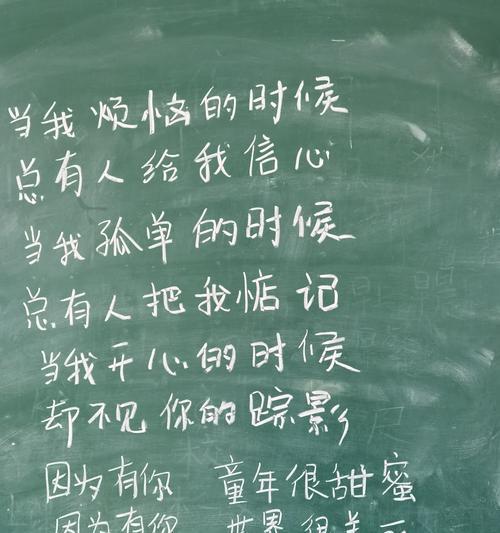 当我烦恼的时候
总有人给我信心
当我孤单的时候
总有人把我惦记
当我开心的时候
却不见你的踪影
因为有你 童年很甜蜜
因为有你 世界很美